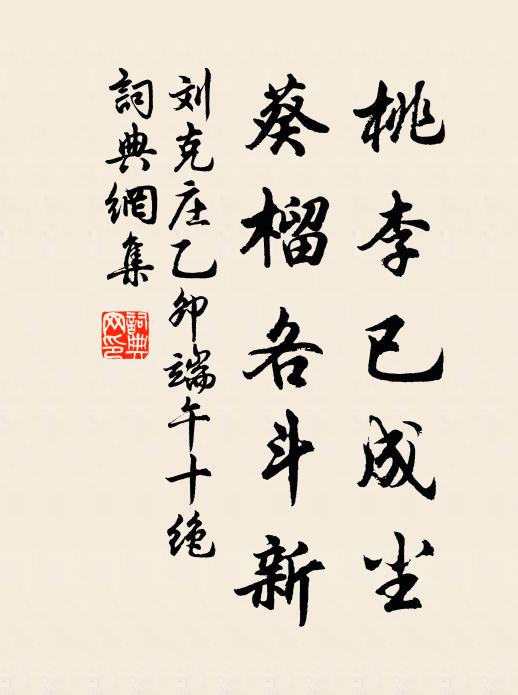 桃李已成尘
葵榴各斗新
刘克庄乙卯端午十绝
詞典網集
詞典网印